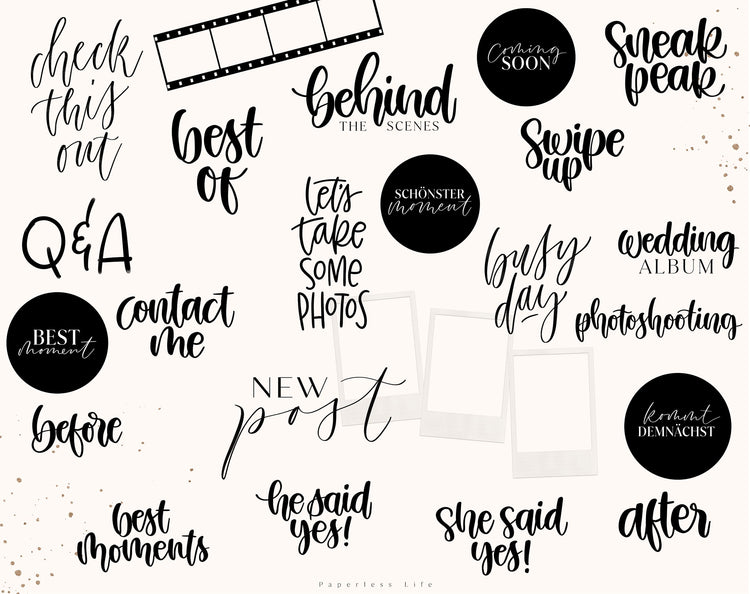 check
this
out
best
of
behind
THE SCENES
Coming
SOON
sneak
peak
Swipe
up
Q&A
let's
take
some
PHOTOS
SCHÖNSTER
moment
busy
day
wedding
ALBUM
BEST
moment
contact
me
photoshooting
before
NEW
post
kommt
DEMNÄCHST
best
moments
he said
yes!
she said
yes!
after
Paperless Life